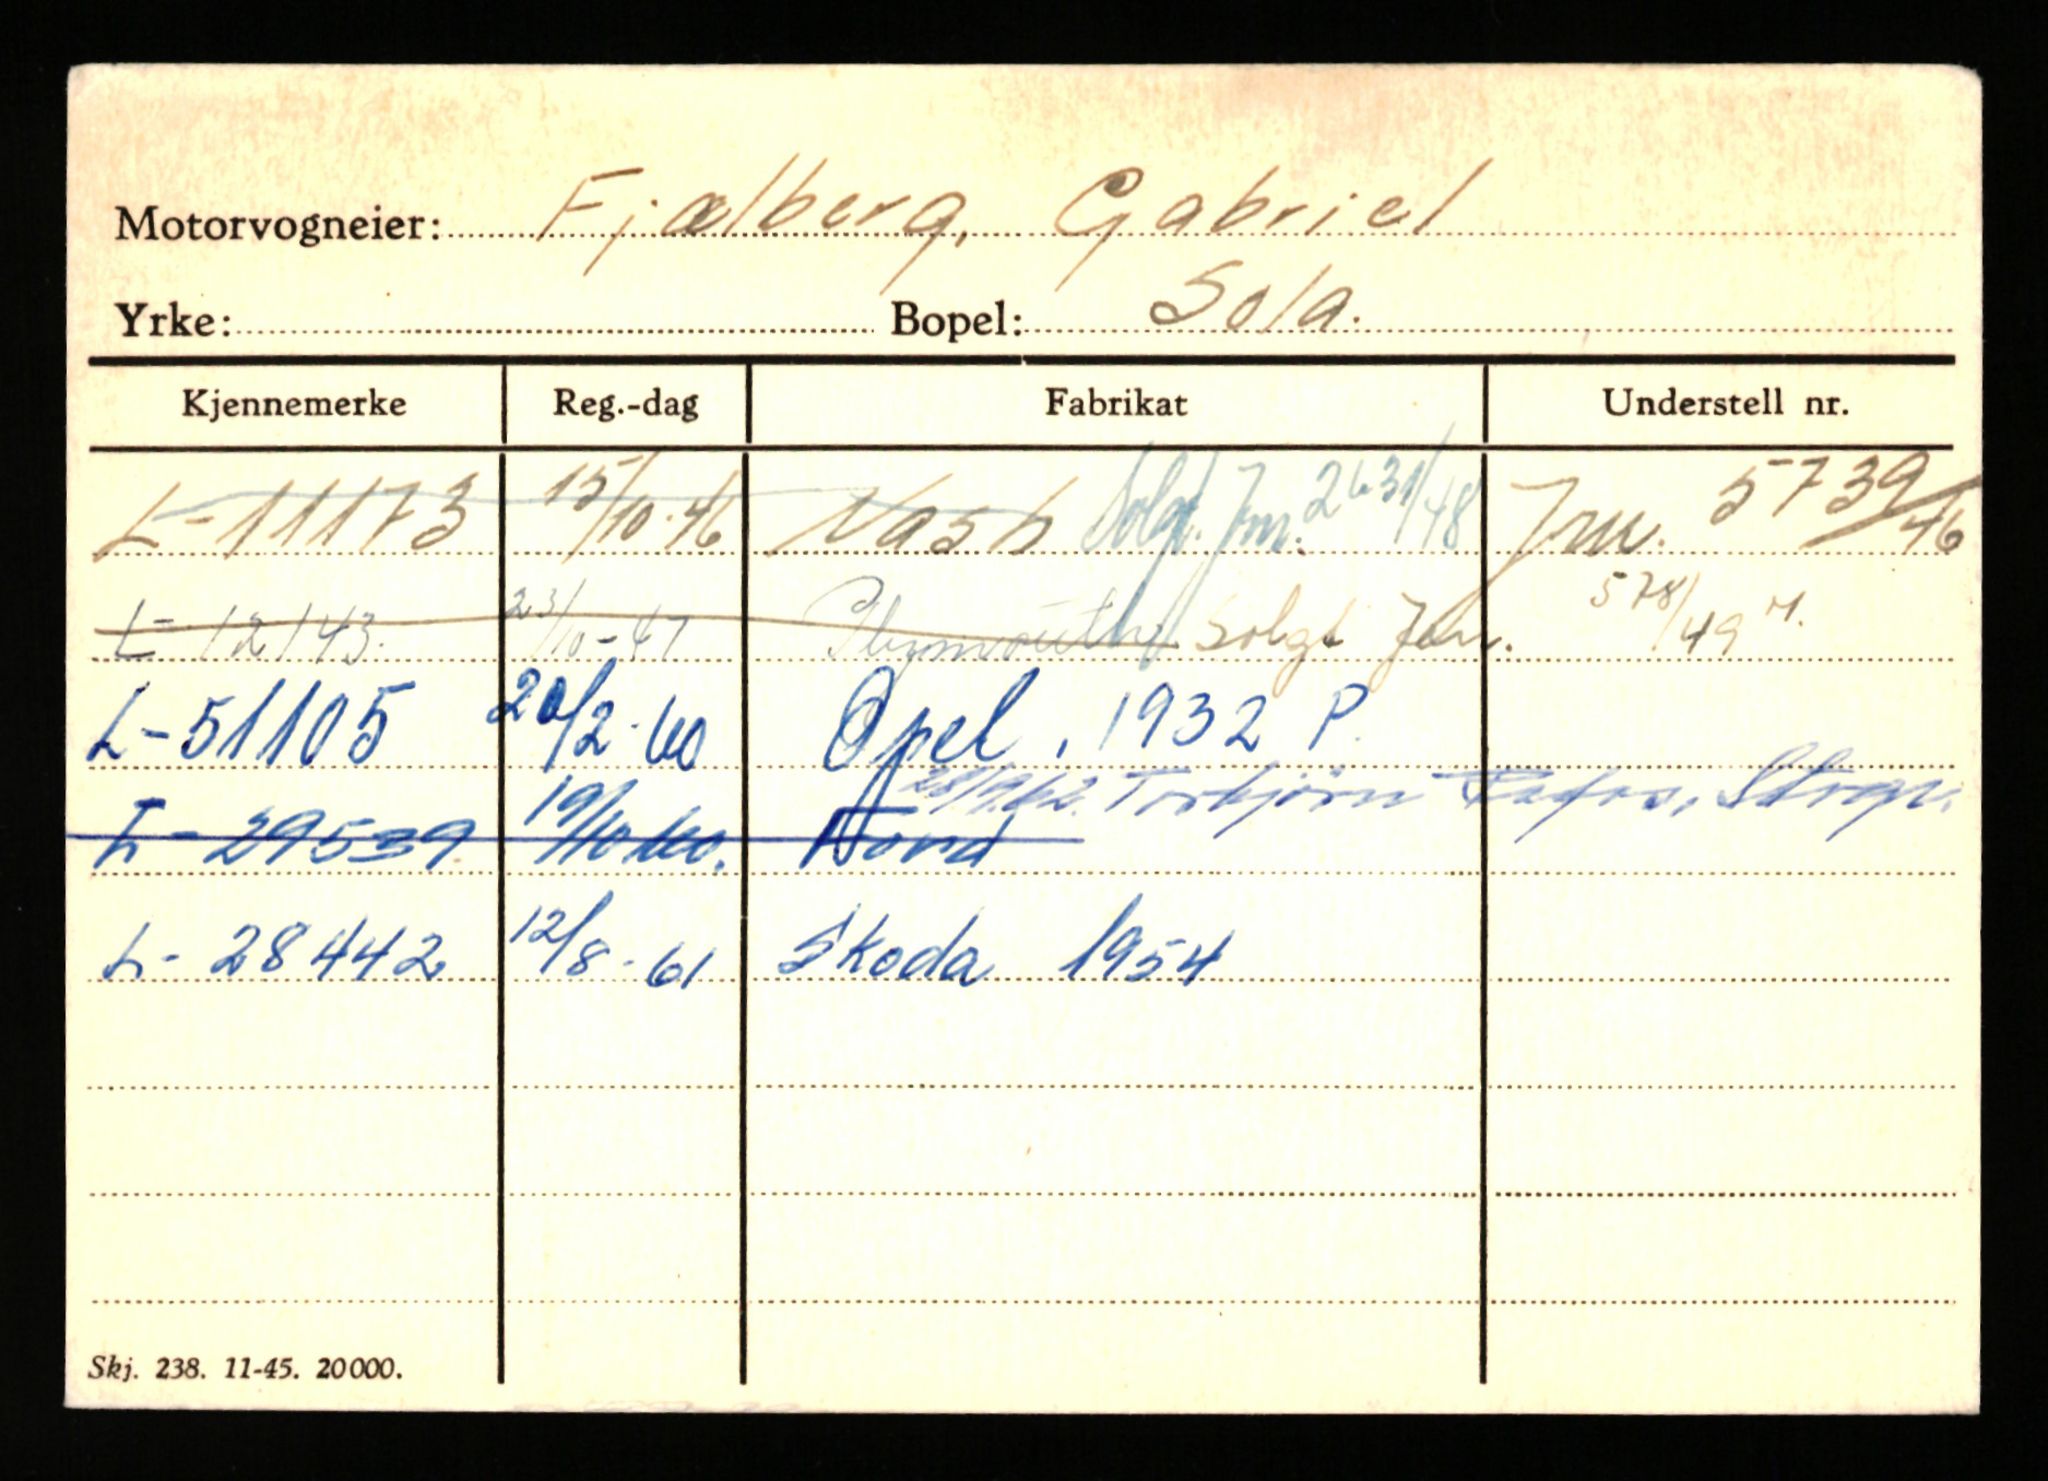 Motorvogneier: Fjælberg, Gabriel
Yrke: Bopel: Sola.
Kjennemerke Reg.-dag Fabrikat Understell nr.
L-11173 15/10.46 Nash Solgt. Jnr. 2631/48 Jnr. 5739/46
L-12143. 23/10-47 Plymouth Solgt Jnr. 578/49 M.
L-51105 20/2.60 Opel, 1932 P.
28/9.62. Torbjörn
L-29539 19/10 60. Ford
L-28442 12/8-61 Skoda 1954
Skj. 238. 11-45. 20000.